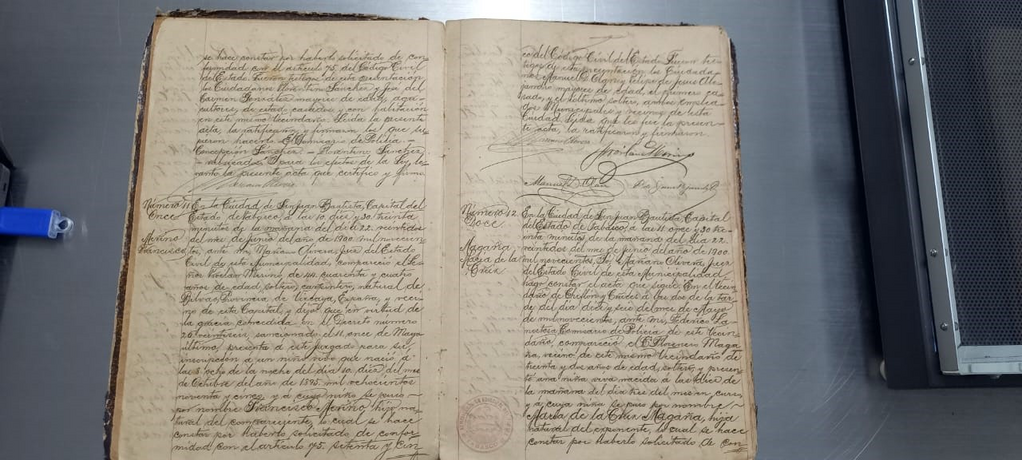 se hace constar por haberlo solicitado de con
formidad con el artículo 75 del Código Civil
del Estado. Fueron testigos de esta presentación
los Ciudadanos Florentino Sanchez y José del
Carmen Gonzalez mayores de edad, agri
cultores, de estado casados y con habitación
en este mismo Vecindario. Leída la presente
acta, la ratificaron y firmaron los que su
pieron hacerlo. El Comisario de Policía
Florentino Sanchez
para los efectos de la Ley, le
vanto la presente acta que certifico y firmo.
Número 11
Once
Meriño
Francisco
En la Ciudad de San Juan Bautista, Capital del
Estado de Tabasco, a las 10 diez y 30 treinta
minutos de la mañana del día 22 veintidos
del mes de Junio del año de 1900 mil novecien
tos, ante mí, Mañan Olivera, Juez del Estado
Civil de esta Municipalidad, compareció el Se
ñor de 44 cuarenta y cuatro
años de edad, soltero, natural de
Bilbao, Provincia de Vizcaya, España, y veci
no de esta Capital, y dijo: que en virtud de
la gracia concedida en el Decreto número
26 veintiseis sancionado el once de Mayo
último, presenta a este Juzgado para su
inscripción a un niño vivo que nació a
las 8 ocho de la noche del día 10 diez del mes
de Octubre del año de 1895 mil ochocientos
noventa y cinco, y a cuyo niño se puso
por nombre Francisco Meriño, hijo na
tural del compareciente, lo cual se hace
constar por haberlo solicitado de confor
midad con el artículo 75 setenta y cin
co del Código Civil del Estado. Fueron tes
tigos de esta presentación los Ciudada
nos Manuel y de Jesus Ale
jandro mayores de edad, el primero ca
sado, y el último soltero, ambos emplea
dos Municipales y vecinos de esta
Ciudad. Leída que les fue la presen
te acta, la ratificaron y firmaron.
Número 12
Doce
Magaña
María de la
Cruz
En la Ciudad de San Juan Bautista Capital
del Estado de Tabasco, a las 11 once y 30 trei
nta minutos de la mañana del día 22
veintidos del mes de Junio del año de 1900
mil novecientos, Yo Mañan Olivera Juez
del Estado Civil de esta Municipalidad
hago constar el acta que sigue: En el Vecin
dario de a las dos de la tar
de del día diez y seis del mes de Mayo
de mil novecientos, ante mí, Federico La
mottla Comisario de Policía de este Vecin
dario, compareció el C. Florencio Maga
ña, vecino de este mismo Vecindario de
treinta y dos años de edad, soltero, y presen
tó una niña viva nacida a las de
la mañana del día tres del mes en cur
so, y a cuya niña se puso por nombre
María de la Cruz Magaña, hija
natural del exponente, lo cual se hace
constar por haberlo solicitado de con